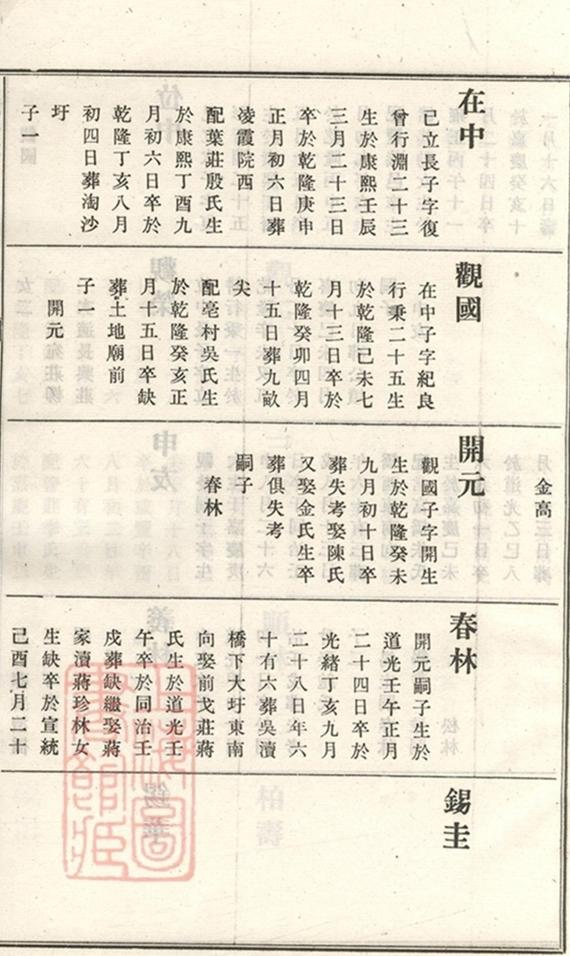 在中
已立長子字復
曾行淵二十三
生於康熙壬辰
三月二十三日
卒於乾隆庚申
正月初六日葬
凌霞院西
配葉莊殷氏生
於康熙丁酉九
月初六日卒於
乾隆丁亥八月
初四日葬淘沙
圩
子
觀國
在中子字紀良
行秉二十五生
於乾隆己未七
月十三日卒於
乾隆癸卯四月
十五日葬九畝
尖
配亳村吳氏生
於乾隆癸亥正
月十五日卒缺
葬土地廟前
子一
開元
金高
開元
觀國子字開生
生於乾隆癸未
九月初十日卒
葬失考娶陳氏
又娶金氏生卒
葬俱失考
嗣子
春林
春林
開元嗣子生於
道光壬午正月
二十四日卒於
光緒丁亥九月
二十八日年六
十有六葬吳瀆
橋下大圩東南
向娶前戈莊蔣
氏生於道光壬
午卒於同治壬
戌葬缺繼娶蔣
家瀆蔣珍林女
生缺卒於宣統
己酉七月二十
錫圭